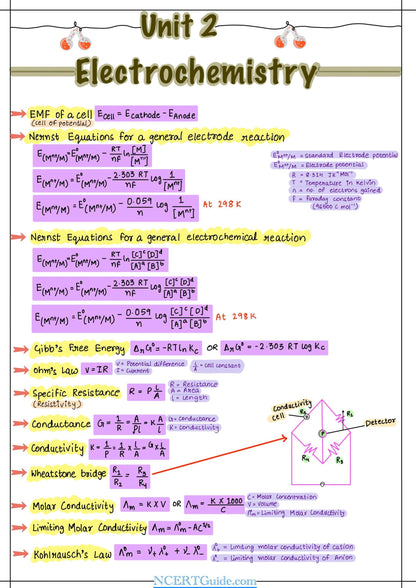 Unit 2
Electrochemistry
→ EMF of a cell E cell = E cathode - E Anode
(cell of potential)
→ Nernst Equations for a general electrode reaction
E(Mⁿ⁺/M) = E°(Mⁿ⁺/M) - RT/nF ln [M]/[Mⁿ⁺]
E(Mⁿ⁺/M) = E°(Mⁿ⁺/M) - 2.303 RT/nF log 1/[Mⁿ⁺]
E(Mⁿ⁺/M) = E°(Mⁿ⁺/M) - 0.059/n log 1/[Mⁿ⁺] At 298 K
E°Mⁿ⁺/M = Standard Electrode potential
EMⁿ⁺/M = Electrode potential
R = 8.314 JK⁻¹Mol⁻¹
T = Temperature in Kelvin
n = no. of electrons gained
F = Faraday constant
(96500 C mol⁻¹)
→ Nernst Equations for a general electrochemical reaction
E(Mⁿ⁺/M) = E°(Mⁿ⁺/M) - RT/nF ln [C]ᶜ[D]ᵈ/[A]ᵃ[B]ᵇ
E(Mⁿ⁺/M) = E°(Mⁿ⁺/M) - 2.303 RT/nF log [C]ᶜ[D]ᵈ/[A]ᵃ[B]ᵇ
E(Mⁿ⁺/M) = E°(Mⁿ⁺/M) - 0.059/n log [C]ᶜ[D]ᵈ/[A]ᵃ[B]ᵇ At 298 K
→ Gibb's Free Energy ΔrG° = -RT ln Kc OR ΔrG° = -2.303 RT log Kc
→ Ohm's Law V = IR V = Potential difference I = Current l/A = cell constant
→ Specific Resistance R = ρ l/A R = Resistance A = Area L = Length
(Resistivity)
→ Conductance G = 1/R = A/ρl = K A/l G = conductance K = conductivity
→ Conductivity K = 1/ρ = 1/R x l/A = G x l/A
→ Wheatstone bridge R₁/R₂ = R₃/R₄
Conductivity cell
R₂
R₁
P
Detector
R₄
R₃
→ Molar Conductivity Λm = K X V OR Λm = K X 1000/C
C = Molar Concentration
V = Volume
Λm = Limiting Molar Conductivity
→ Limiting Molar Conductivity Λm = Λ°m - AC^1/2
→ Kohlrausch's Law Λ°m = ν₊ λ°₊ + ν₋ λ°₋
λ°₊ = Limiting molar conductivity of cation
λ°₋ = Limiting molar conductivity of Anion
NCERTGuide.com